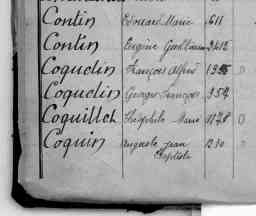 Contin Edouard Marie 611
Contin Eugène 2412
Coquelin François Alfred
Coquelin Georges François 954
Coquillet Théophile Marie 1178 O
Coquin Auguste Jean 1230 O
Baptiste